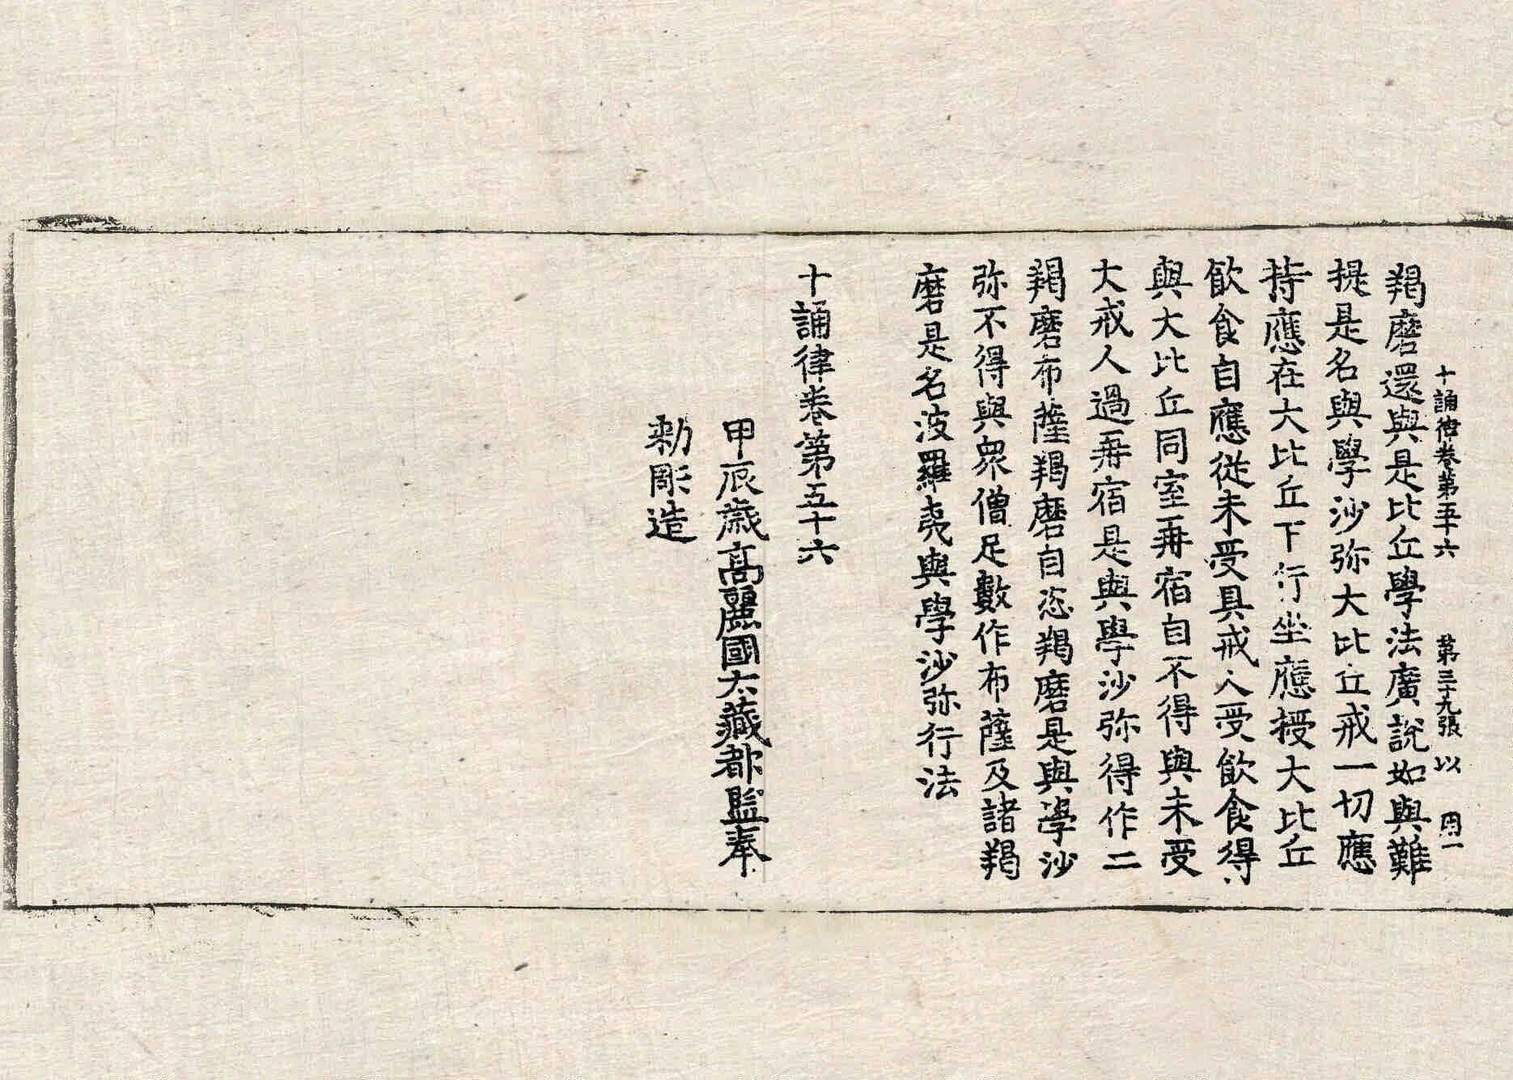 十誦律卷第五十六 第三十九張 以
羯磨還與是比丘學法廣說如與難
提是名與學沙弥大比丘戒一切應
持應在大比丘下行坐應授大比丘
飲食自應從未受具戒人受飲食得
與大比丘同室再宿自不得與未受
大戒人過再宿是與學沙弥得作二
羯磨布薩羯磨自恣羯磨是與學沙
弥不得與眾僧足數作布薩及諸羯
磨是名波羅夷與學沙弥行法
十誦律卷第五十六
甲辰歲高麗國大藏都監奉
勅彫造